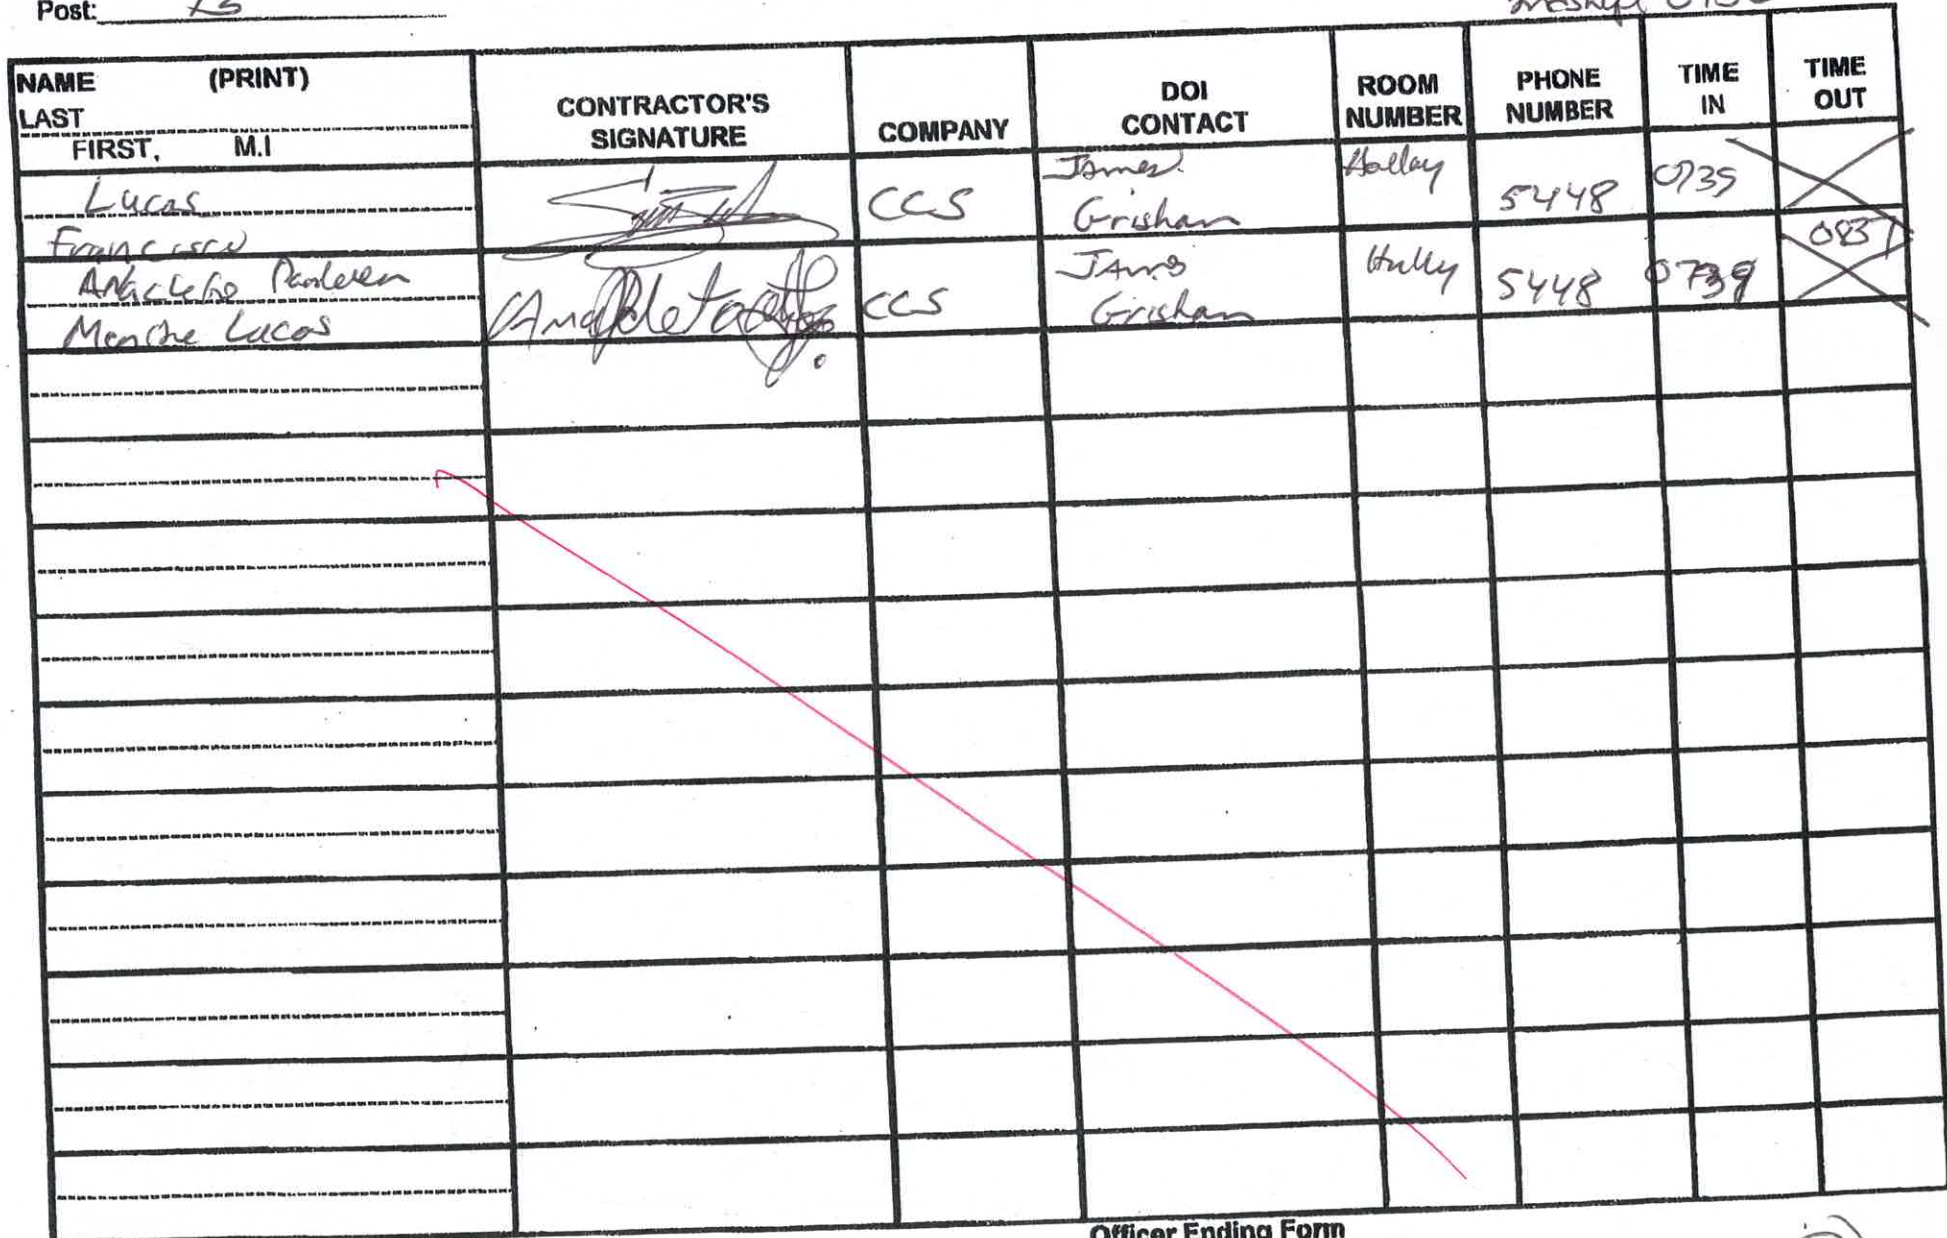 Post:
NAME (PRINT)
LAST
FIRST, M.I
CONTRACTOR'S
SIGNATURE
COMPANY
DOI
CONTACT
ROOM
NUMBER
PHONE
NUMBER
TIME
IN
TIME
OUT
Lucas
Francisco
CCS
James
Grisham
5448
0735
Lucas
CCS
James
Grisham
5448
0739
0837
Officer Ending Form